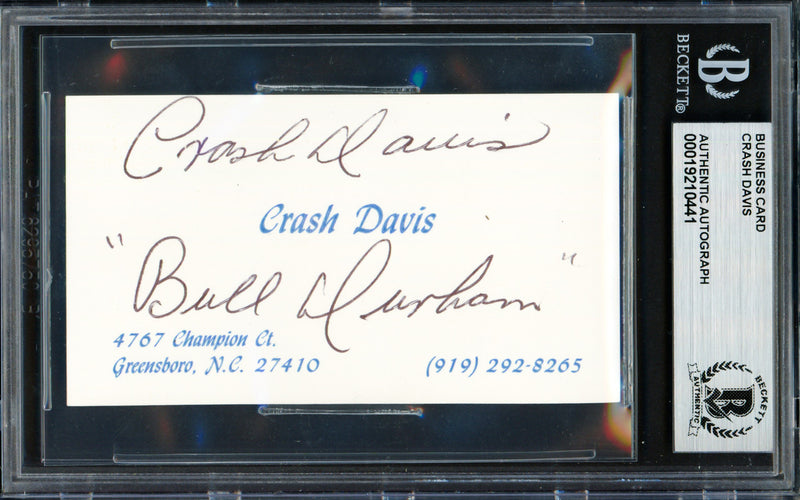 Crash Davis
Crash Davis
"Bull Durham"
4767 Champion Ct.
Greensboro, N.C. 27410
(919) 292-8265
B
BECKETT®
BUSINESS CARD
CRASH DAVIS
AUTHENTIC AUTOGRAPH
00019210441
BECKETT
B
AUTHENTIC